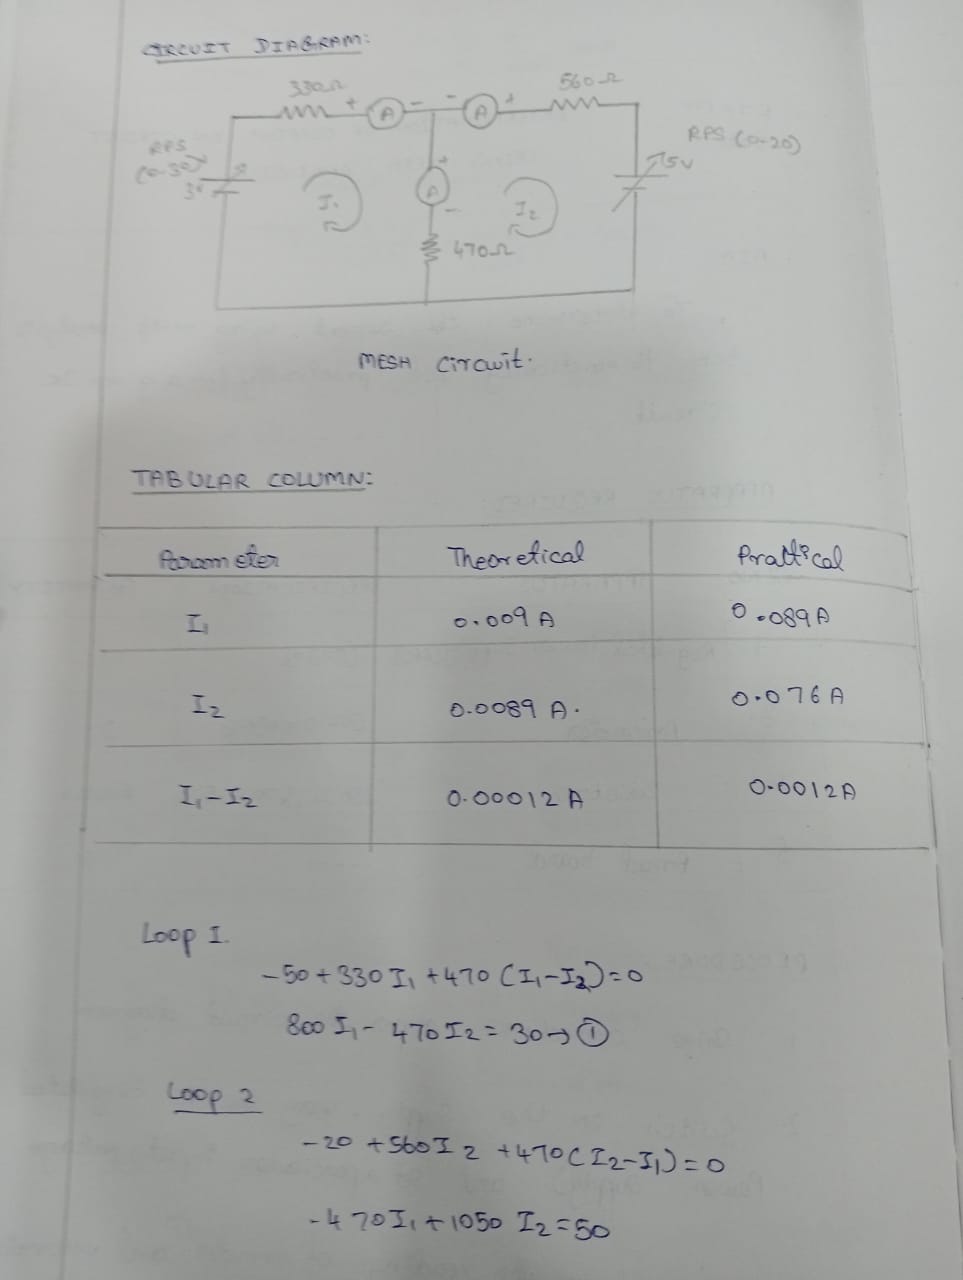 CIRCUIT DIAGRAM:
330Ω
560Ω
+ A - - A +
RPS
(0-30)
3v
RPS (0-20)
5v
+
A
-
I1
I2
470Ω
MESH Circuit.
TABULAR COLUMN:
Parameter Theoretical Prattical
I1 0.009 A 0.089A
I2 0.0089 A. 0.076A
I1-I2 0.00012 A 0.0012A
Loop I.
-50+330 I1 +470 (I1-I2)=0
800 I1 - 470 I2 = 30→①
Loop 2
-20 +560I2 +470(I2-I1)=0
-470I1+1050 I2=50